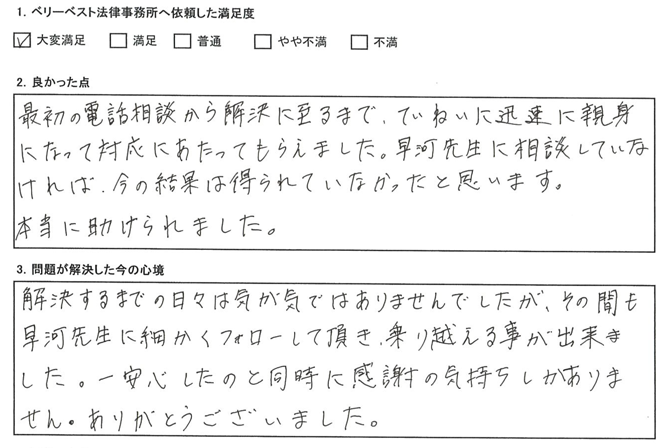 1. ベリーベスト法律事務所へ依頼した満足度
☑ 大変満足 □ 満足 □ 普通 □ やや不満 □ 不満
2. 良かった点
最初の電話相談から解決に至るまで、ていねいに迅速に親身
になって対応にあたってもらえました。早河先生に相談していな
ければ、今の結果は得られていなかったと思います。
本当に助けられました。
3. 問題が解決した今の心境
解決するまでの日々は気が気ではありませんでしたが、その間も
早河先生に細かくフォローして頂き、乗り越える事が出来ま
した。一安心したのと同時に感謝の気持ちしかありま
せん。ありがとうございました。